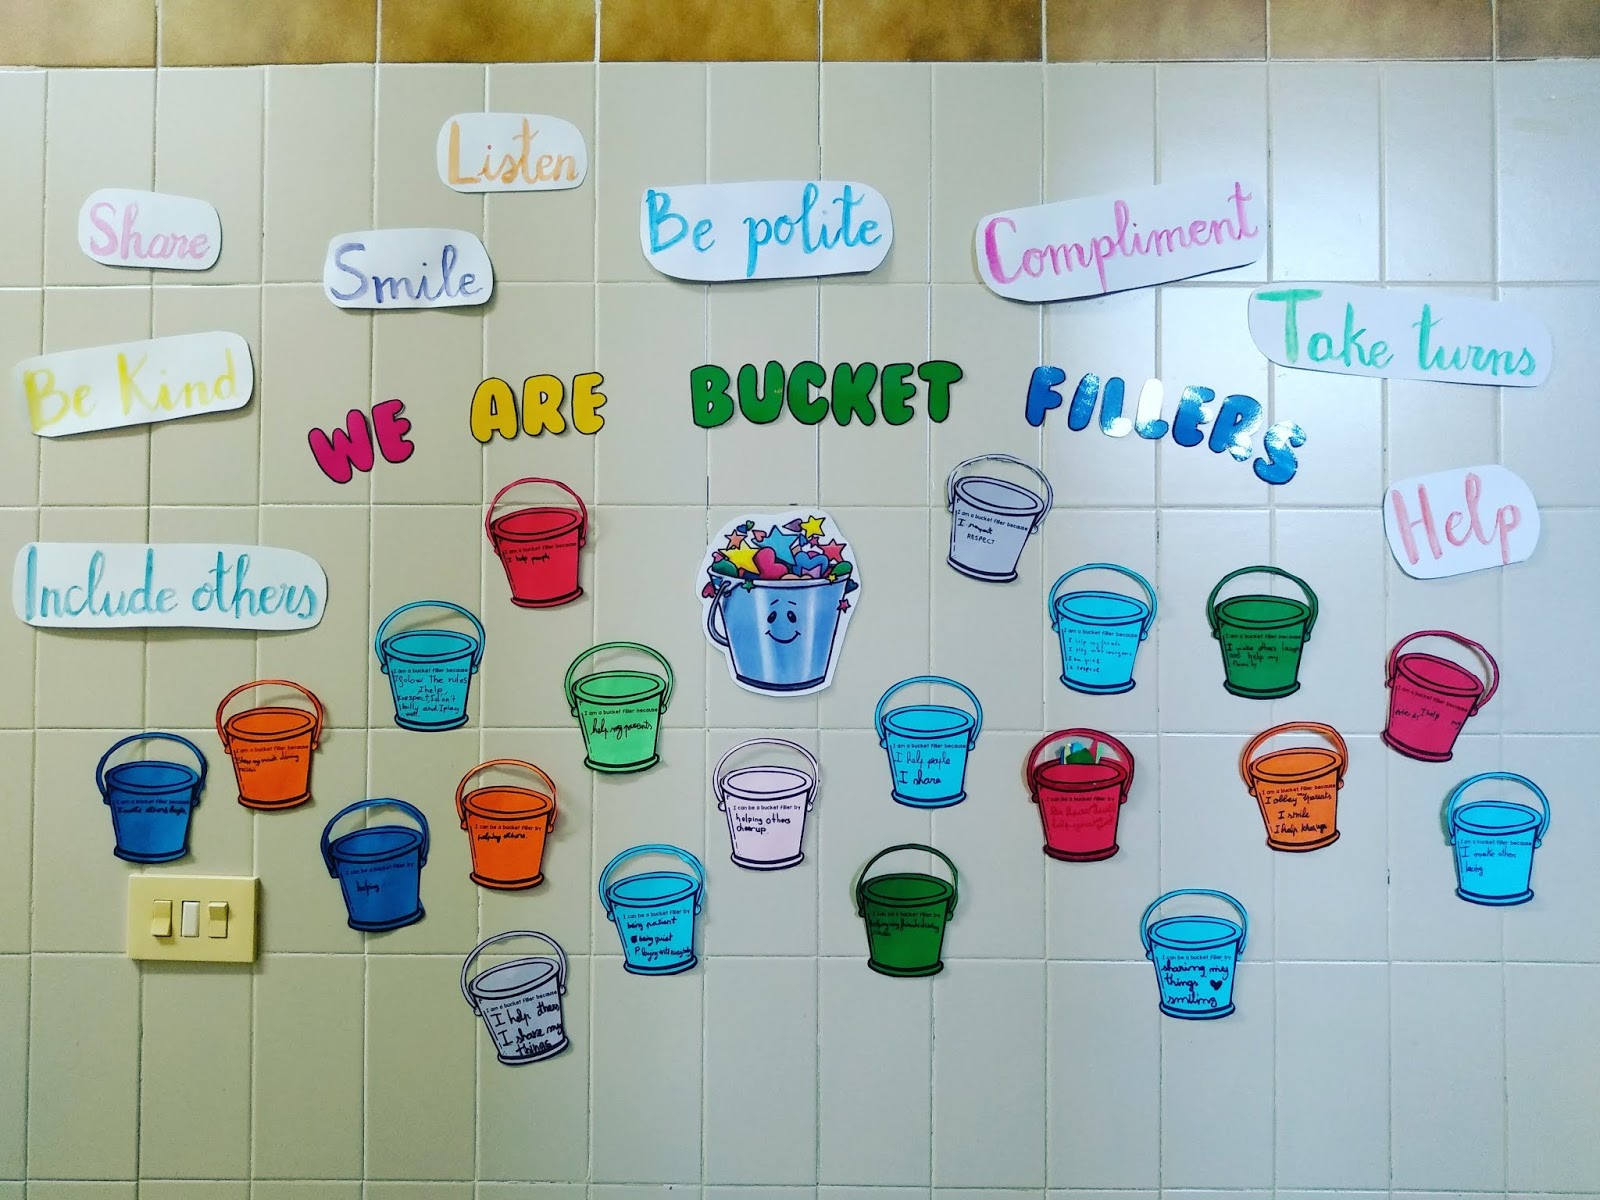 Listen
Share
Be polite
Compliment
Smile
Take turns
Be Kind
WE ARE BUCKET FILLERS
Help
Include others
I am a bucket filler because
I help people
I am a bucket filler because
I
RESPECT
I am a bucket filler because
I folow the rules
I help,
I respect, I don't
bully and I play
well.
I am a bucket filler because
help my parents
I am a bucket filler because
I help my friends
I play with everyone
I am polite
I am a bucket filler because
I make others laugh
and help my
I am a bucket filler because
I help my
I am a bucket filler because
I am a bucket filler because
I make others laugh
I can be a bucket filler by
helping
I can be a bucket filler by
helping others.
I can be a bucket filler by
helping others
cheer up
I am a bucket filler because
I help people
I share
I can be a bucket filler by
I am a bucket filler because
I obbey my parents
I smile
I help
I am a bucket filler because
I make other
I can be a bucket filler by
being patient
being quiet
Playing with everybody
I can be a bucket filler by
helping my friends
I can be a bucket filler by
sharing my
things
smiling
I am a bucket filler because
I help others
I share my
things